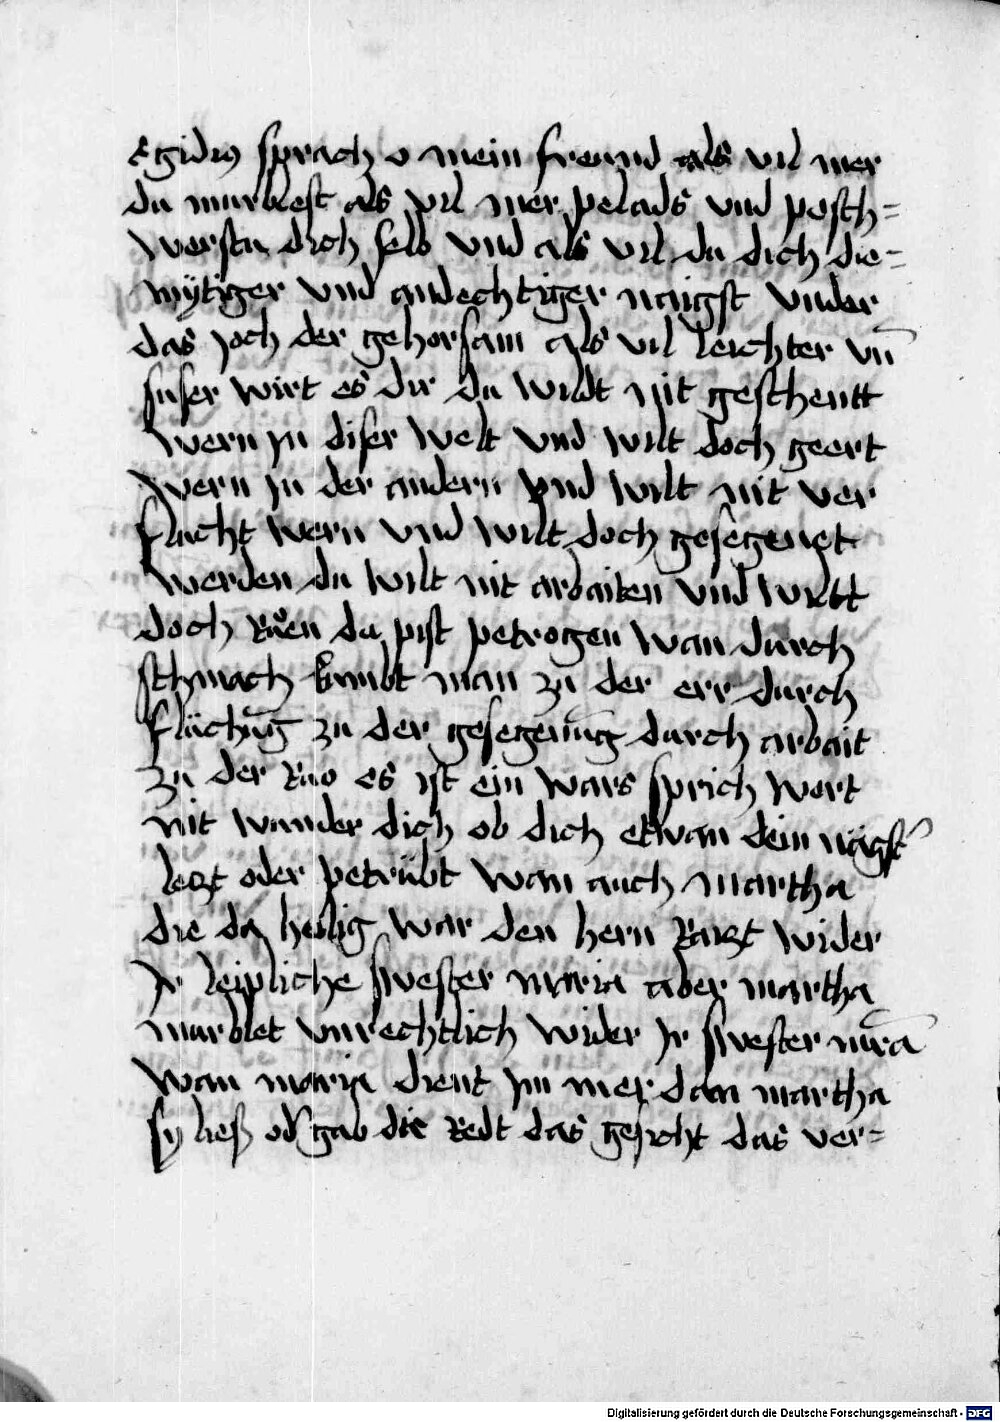 Egidius sprach o mein freund als vil mer
du murblest als vil mer peladst vnd pesch=
werstu dich selb vnd als vil du dich die=
mýtiger vnd andechtiger naigst vnder
das joch der gehorsam als vil leichter vn̄
susser wirt es dir du wildt nit geschentt
wern jn diser welt vnd wilt doch geert
wern jn der andern vnd wilt nit ver
flucht wern vnd wilt doch gesegenet
werden du wilt nit arbaiten vnd wildt
doch Ruͦen du pist petrogen wan durch
schmach kumbt man zu der err durch
fluchūg zu der gesegenūg durch arbait
zu der Ruo es ist ein wars sprich wort
nit wunder dich ob dich etwan dein nágst
letzt oder petrúbt wan auch martha
die da heilig war den hern Raitzt wider
jr leipliche swester maria aber martha
murblet vnrechtlich wider jr swester mīa
wan maria dient jm mer dan martha
sy ließ od gab die Redt das gesicht das ver=
Digitalisierung gefördert durch die Deutsche Forschungsgemeinschaft - DFG